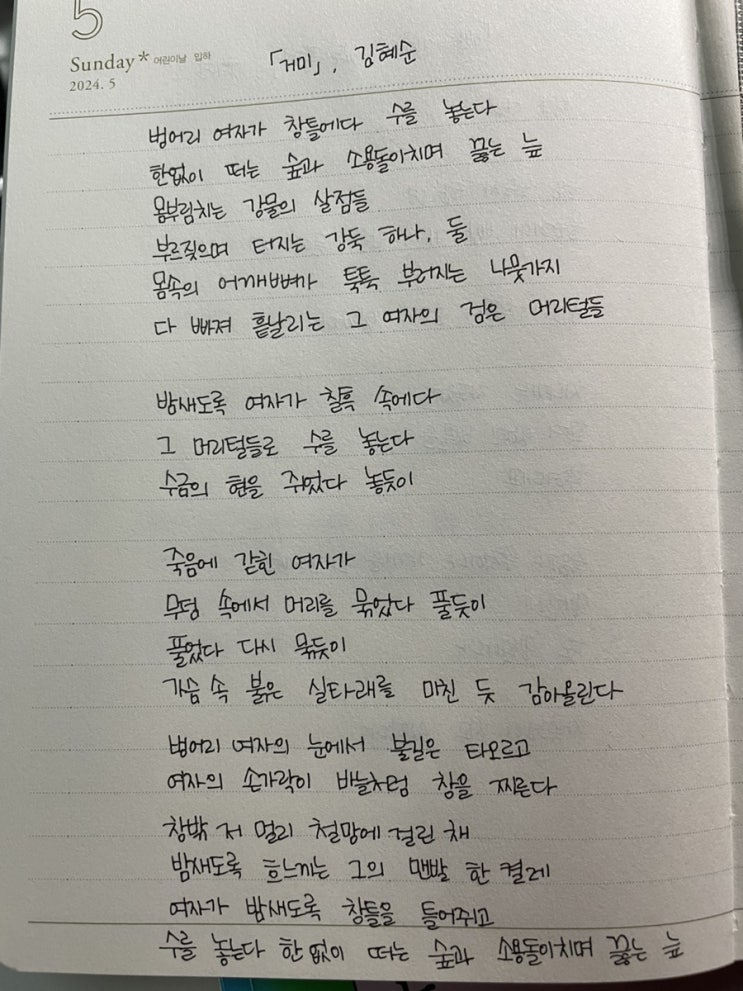 5
Sunday* 어린이날 입하
2024. 5
「거미」, 김혜순
벙어리 여자가 창틀에다 수를 놓는다
한없이 떠는 숲과 소용돌이치며 끓는 늪
몸부림치는 강물의 살점들
부르짖으며 터지는 강둑 하나, 둘
몸속의 어깨뼈가 툭툭 부러지는 나뭇가지
다 빠져 흩날리는 그 여자의 검은 머리털들
밤새도록 여자가 칠흑 속에다
그 머리털들로 수를 놓는다
수금의 현을 쥐었다 놓듯이
죽음에 갇힌 여자가
무덤 속에서 머리를 묶었다 풀듯이
풀었다 다시 묶듯이
가슴 속 붉은 실타래를 미친 듯 감아올린다
벙어리 여자의 눈에서 불길은 타오르고
여자의 손가락이 바늘처럼 창을 찌른다
창밖 저 멀리 철망에 걸린 채
밤새도록 흐느끼는 그의 맨발 한 켤레
여자가 밤새도록 창틀을 들어쥐고
수를 놓는다 한없이 떠는 숲과 소용돌이치며 끓는 늪